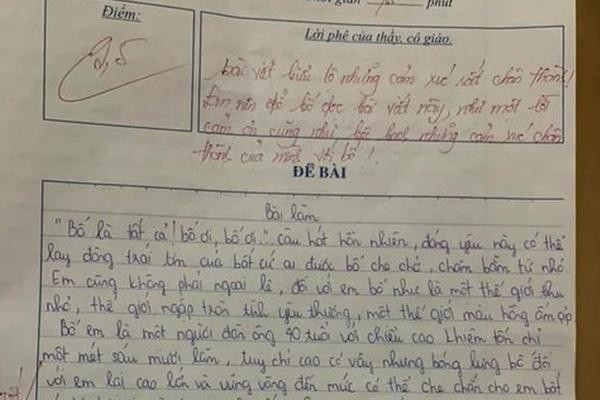 phút
Điểm:
9,5
Lời phê của thầy, cô giáo.
bài viết biểu lộ những cảm xúc rất chân thành!
Em nên để bố đọc bài viết này, như một lời
cảm ơn cũng như bộc bạch những cảm xúc chân
thành của mình với bố!
ĐỀ BÀI
Bài làm
"Bố là tất cả! bố ơi, bố ơi." câu hát hồn nhiên, đáng yêu này có thể
lay động trái tim của bất cứ ai được bố che chở, chăm bẵm từ nhỏ.
Em cũng không phải ngoại lệ, đối với em bố như là một thế giới thu
nhỏ, thế giới ngập tràn tình yêu thương, một thế giới màu hồng ấm áp.
Bố em là một người đàn ông 40 tuổi với chiều cao khiêm tốn chỉ
một mét sáu mươi lăm, tuy chỉ cao có vậy nhưng bóng lưng bố đối
với em lại cao lớn và vững vàng đến mức có thể che chắn cho em bất